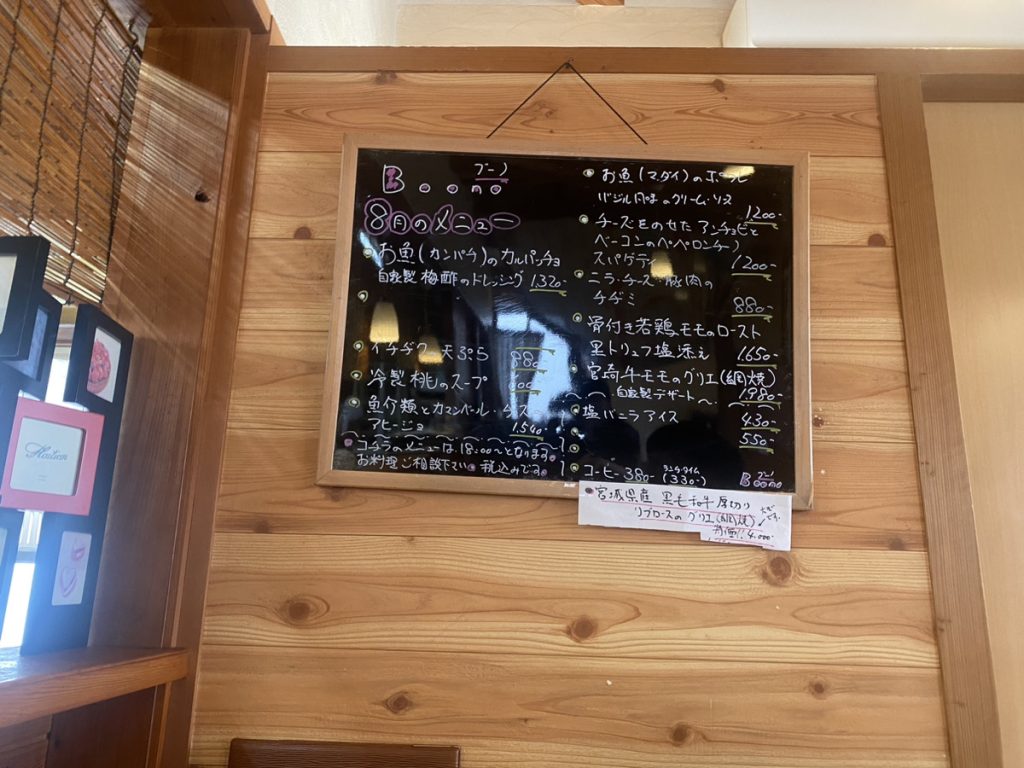 ブーノ
Boono
8月のメニュー
お魚(カンパチ)のカルパッチョ
自家製 梅酢のドレッシング 1.320-
イチヂク 天ぷら 880-
冷製 桃のスープ
魚介類とカマンベール・チーズ
アヒージョ 1.540-
コチラのメニューは、18:00〜となります。
お料理ご相談下さい。税込みです。
お魚(マダイ)のポワレ
バジル風味のクリームソース
1200-
チーズをのせた アンチョビと
ベーコンのペペロンチーノ
スパゲティ 1200-
ニラ・チーズ・豚肉の
チヂミ 880-
骨付き若鶏モモのロースト
黒トリュフ塩添え 1.650-
宮崎牛モモのグリエ(網焼)
1.980-
〜自家製デザート〜
塩バニラアイス 430-
550-
コーヒー 380- ランチタイム (330-)
ブーノ
Boono
宮城県産 黒毛和牛 厚切り
リブロースのグリエ(網焼)
4.000-
Haitien